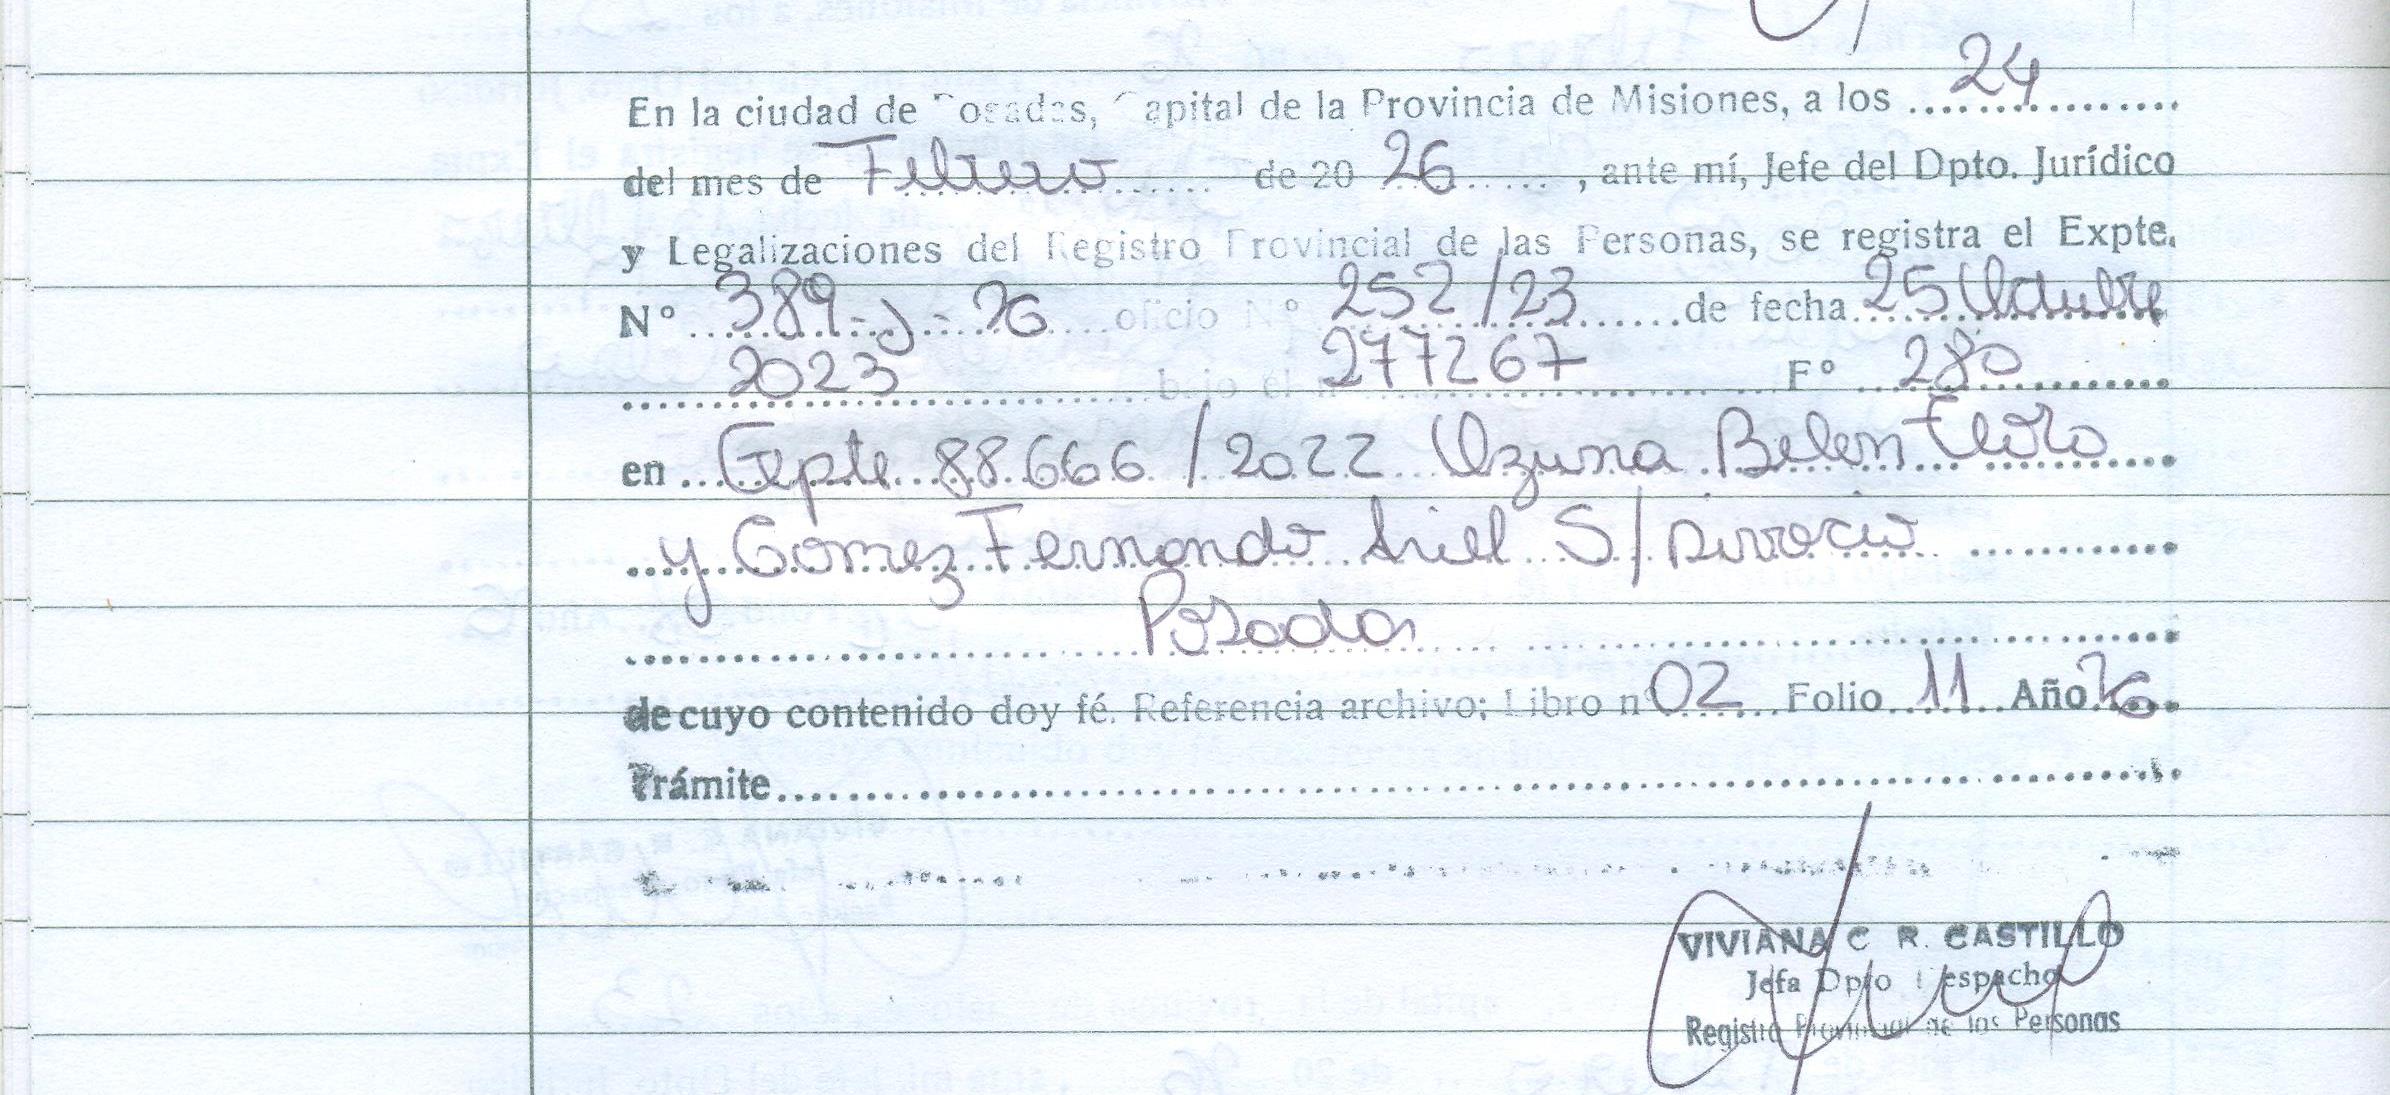 En la ciudad de Posadas, Capital de la Provincia de Misiones, a los 24
del mes de Febrero de 20 26, ante mí, Jefe del Dpto. Jurídico
y Legalizaciones del Registro Provincial de las Personas, se registra el Expte.
Nº 389-J-26 oficio Nº 252/23 de fecha 25 Octubre
2023 bajo el nº 277267 Fº 280
en Expte 88.666/2022 Ozuna Belen
y Gomez Fernando Ariel S/Divorcio
Posadas
de cuyo contenido doy fé. Referencia archivo: Libro nº 02 Folio 11 Año 26
Trámite
VIVIANA C R. CASTILLO
Jefa Dpto Despacho
Registro Provincial de las Personas